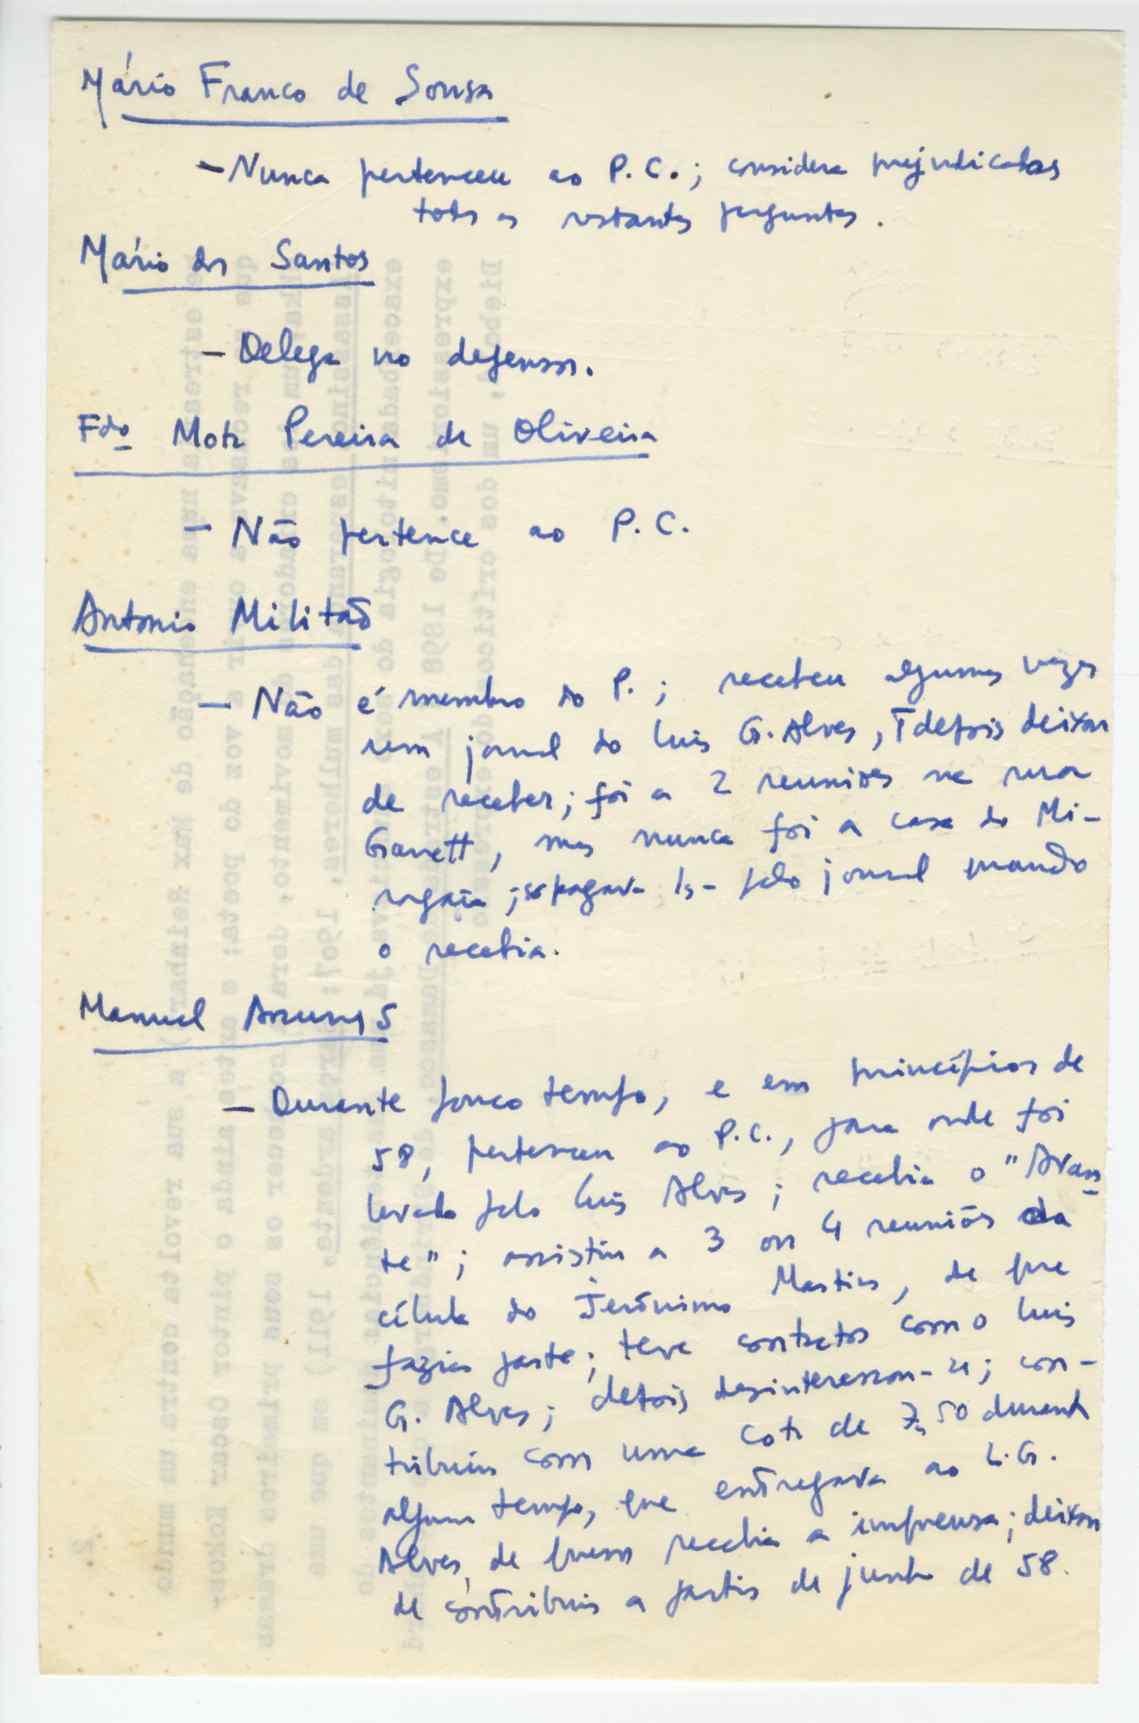 Mário Franco de Sousa
- Nunca pertenceu ao P.C.; considera prejudicadas
todas as restantes perguntas.
Mário dos Santos
- Delega no defensor.
Fdo Mota Pereira de Oliveira
- Não pertence ao P.C.
Antonio Militão
- Não é membro do P.; recebeu algumas vezes
um jornal do Luis G. Alves, depois deixou
de receber; foi a 2 reuniões na rua
Garrett, mas nunca foi a casa do Mi-
ragaia; só pagava 1$- pelo jornal quando
o recebia.
Manuel
- Durante pouco tempo, e em princípios de
58, pertenceu ao P.C., para onde foi
levado pelo Luis Alves; recebia o "Avan-
te"; assistiu a 3 ou 4 reuniões da
célula do Jerónimo Martins, de que
fazia parte; teve contactos com o Luis
G. Alves; depois desinteressou-se; con-
tribuiu com uma cota de 7$50 durante
algum tempo, que entregava ao L.G.
Alves, de quem recebia a imprensa; deixou
de contribuir a partir de junho de 58.